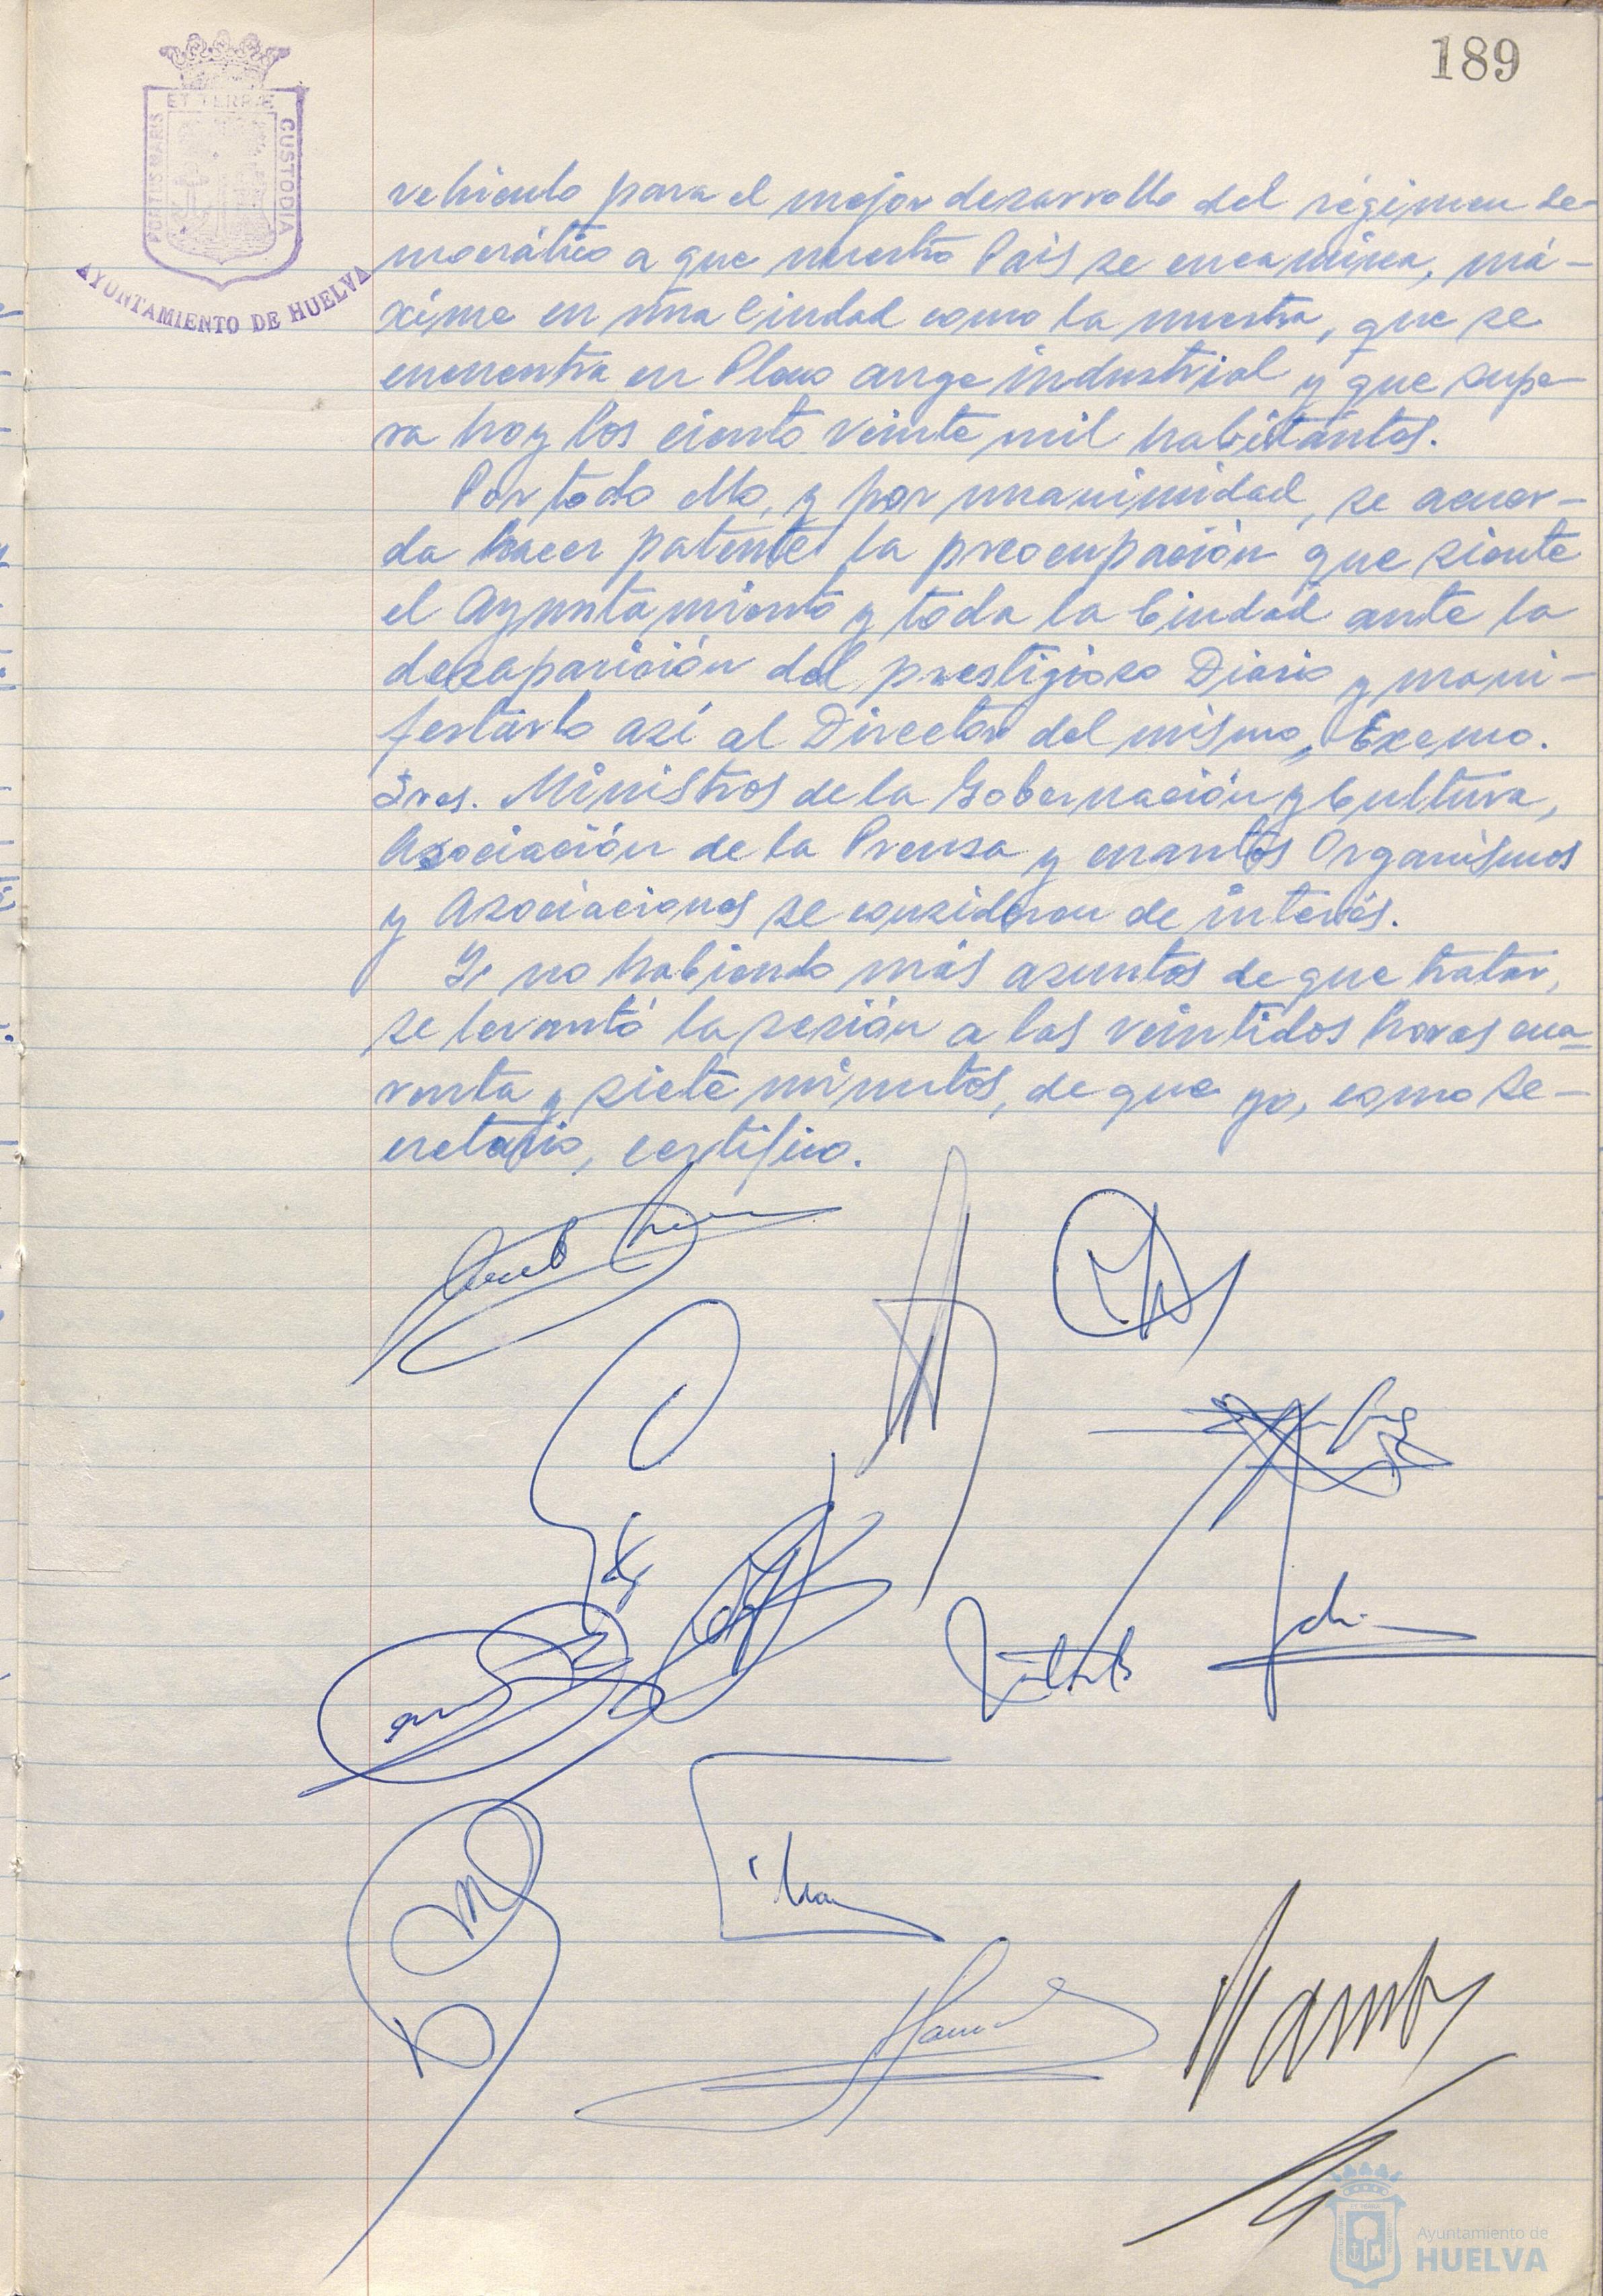 189
PORTUS MARIS ET TERRÆ CUSTODIA
AYUNTAMIENTO DE HUELVA
vehiculo para el mejor desarrollo del régimen de-
mocrático a que nuestro Pais se encamina, má-
xime en una Ciudad como la nuestra, que se
encuentra en Pleno auge industrial y que supe-
ra hoy los ciento veinte mil habitantes.
Por todo ello, y por unanimidad, se acuer-
da hacer patente la preocupación que siente
el Ayuntamiento y toda la Ciudad ante la
desaparición del prestigioso Diario y mani-
festarlo asi al Director del mismo, Excmo.
Sres. Ministros de la Gobernación y Cultura,
Asociación de la Prensa y cuantos Organismos
y Asociaciones se consideran de interés.
Y no habiendo más asuntos de que tratar,
se levantó la sesión a las veintidos horas cua=
renta y siete minutos, de que yo, como Se-
cretario, certifico.
Ayuntamiento de
HUELVA